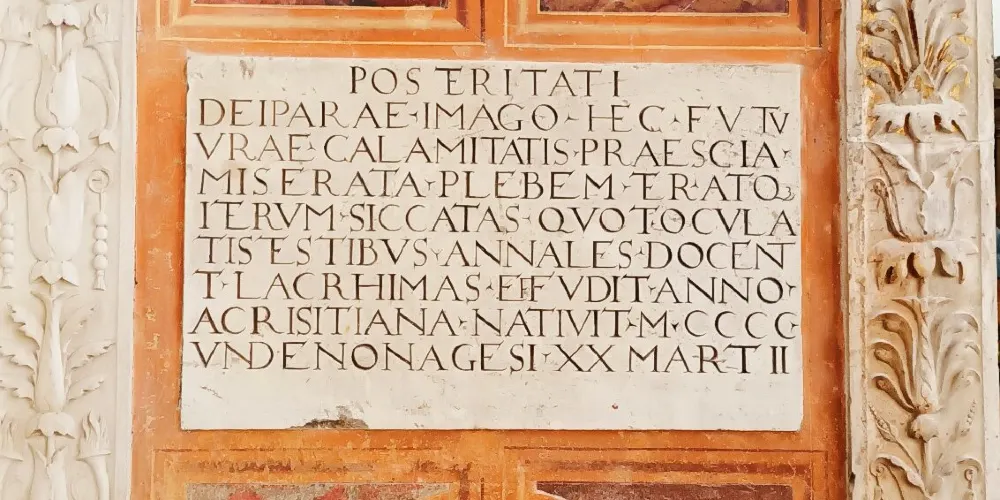 POSTERITATI
DEIPARAE·IMAGO·HEC·FVTV
VRAE·CALAMITATIS·PRAESCIA·
MISERATA·PLEBEM·TERATQ3
ITERVM·SICCATAS·QVOTOCVLA
TIS TESTIBVS·ANNALES·DOCENT
T·LACRHIMAS·EFFVDIT·ANNO·
ACRISITIANA·NATIVIT·M·CCCC
VNDENONAGESI·XX MARTII